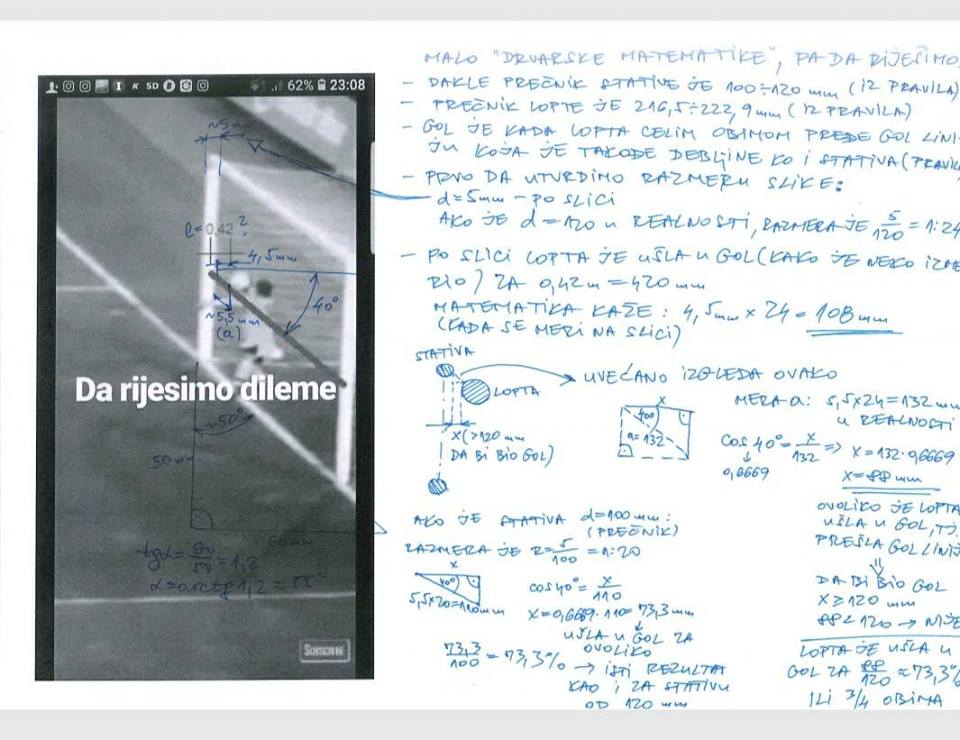 62% 23:08
~5mm
l=0,42?
4,5mm
~5,5mm
(a)
40°
Da rijesimo dileme
50mm
60mm
SUBSCRIBE
MALO "DRVARSKE MATEMATIKE", PA DA RIJEŠIMO
- DAKLE PREČNIK STATIVE JE 100÷120 mm (IZ PRAVILA)
- PREČNIK LOPTE JE 216,5÷222,9mm (IZ PRAVILA)
- GOL JE KADA LOPTA CELIM OBIMOM PREĐE GOL LINI-
JU KOJA JE TAKOĐE DEBLJINE KO I STATIVA (PRAVIL
- PRVO DA UTVRDIMO RAZMERU SLIKE:
d=5mm - PO SLICI
AKO JE d=120 U REALNOSTI, RAZMERA JE 5/120=1:24
- PO SLICI LOPTA JE UŠLA U GOL (KAKO JE NEKO IZME
RIO) ZA 0,42m=420 mm
MATEMATIKA KAŽE: 4,5mm x 24 = 108mm
(KADA SE MERI NA SLICI)
STATIVA
LOPTA
X(>120mm
DA BI BIO GOL)
UVEĆANO IZGLEDA OVAKO
x
40°
a=132
MERA a: 5,5x24=132mm
U REALNOSTI
cos40°=x/132 => x=132·0,6669
0,6669
x=88mm
OVOLIKO JE LOPTA
UŠLA U GOL, TJ.
PREŠLA GOL LINIJ
DA BI BIO GOL
X≥120 mm
88<120 → NIJE
LOPTA JE UŠLA U
GOL ZA 88/120≈73,3%
ILI 3/4 OBIMA
AKO JE STATIVA d=100mm:
(PREČNIK)
RAZMERA JE R=5/100=1:20
x
40°
5,5x20=110mm
cos40°=x/110
x=0,6669·110=73,3mm
UŠLA U GOL ZA
OVOLIKO
73,3/100=73,3% → ISTI REZULTAT
KAO I ZA STATIVU
OD 120 mm